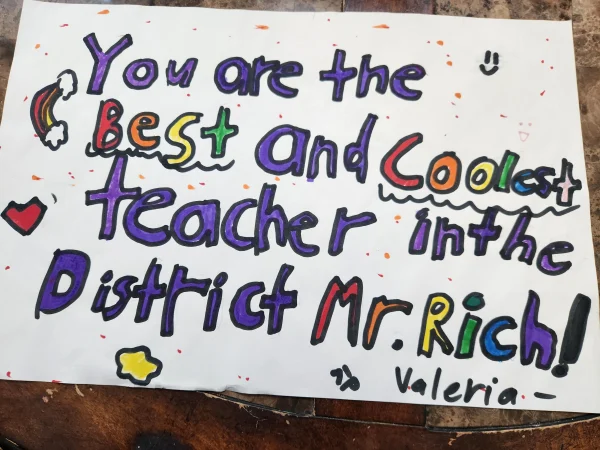 You are the
Best and Coolest
teacher in the
District Mr. Rich!
Valeria -